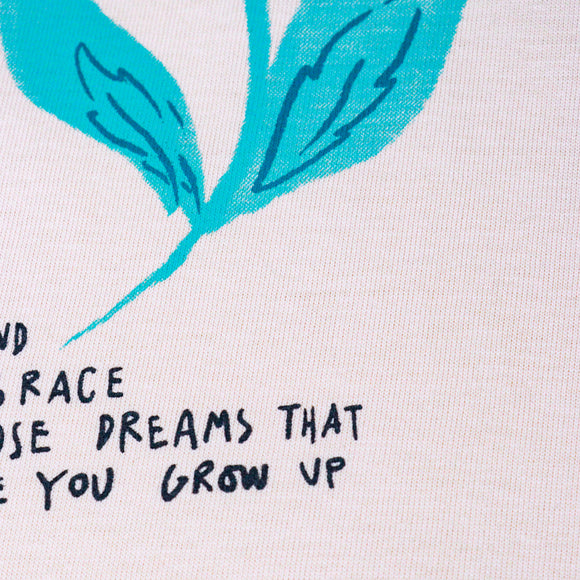 ND
RACE
OSE DREAMS THAT
E YOU GROW UP